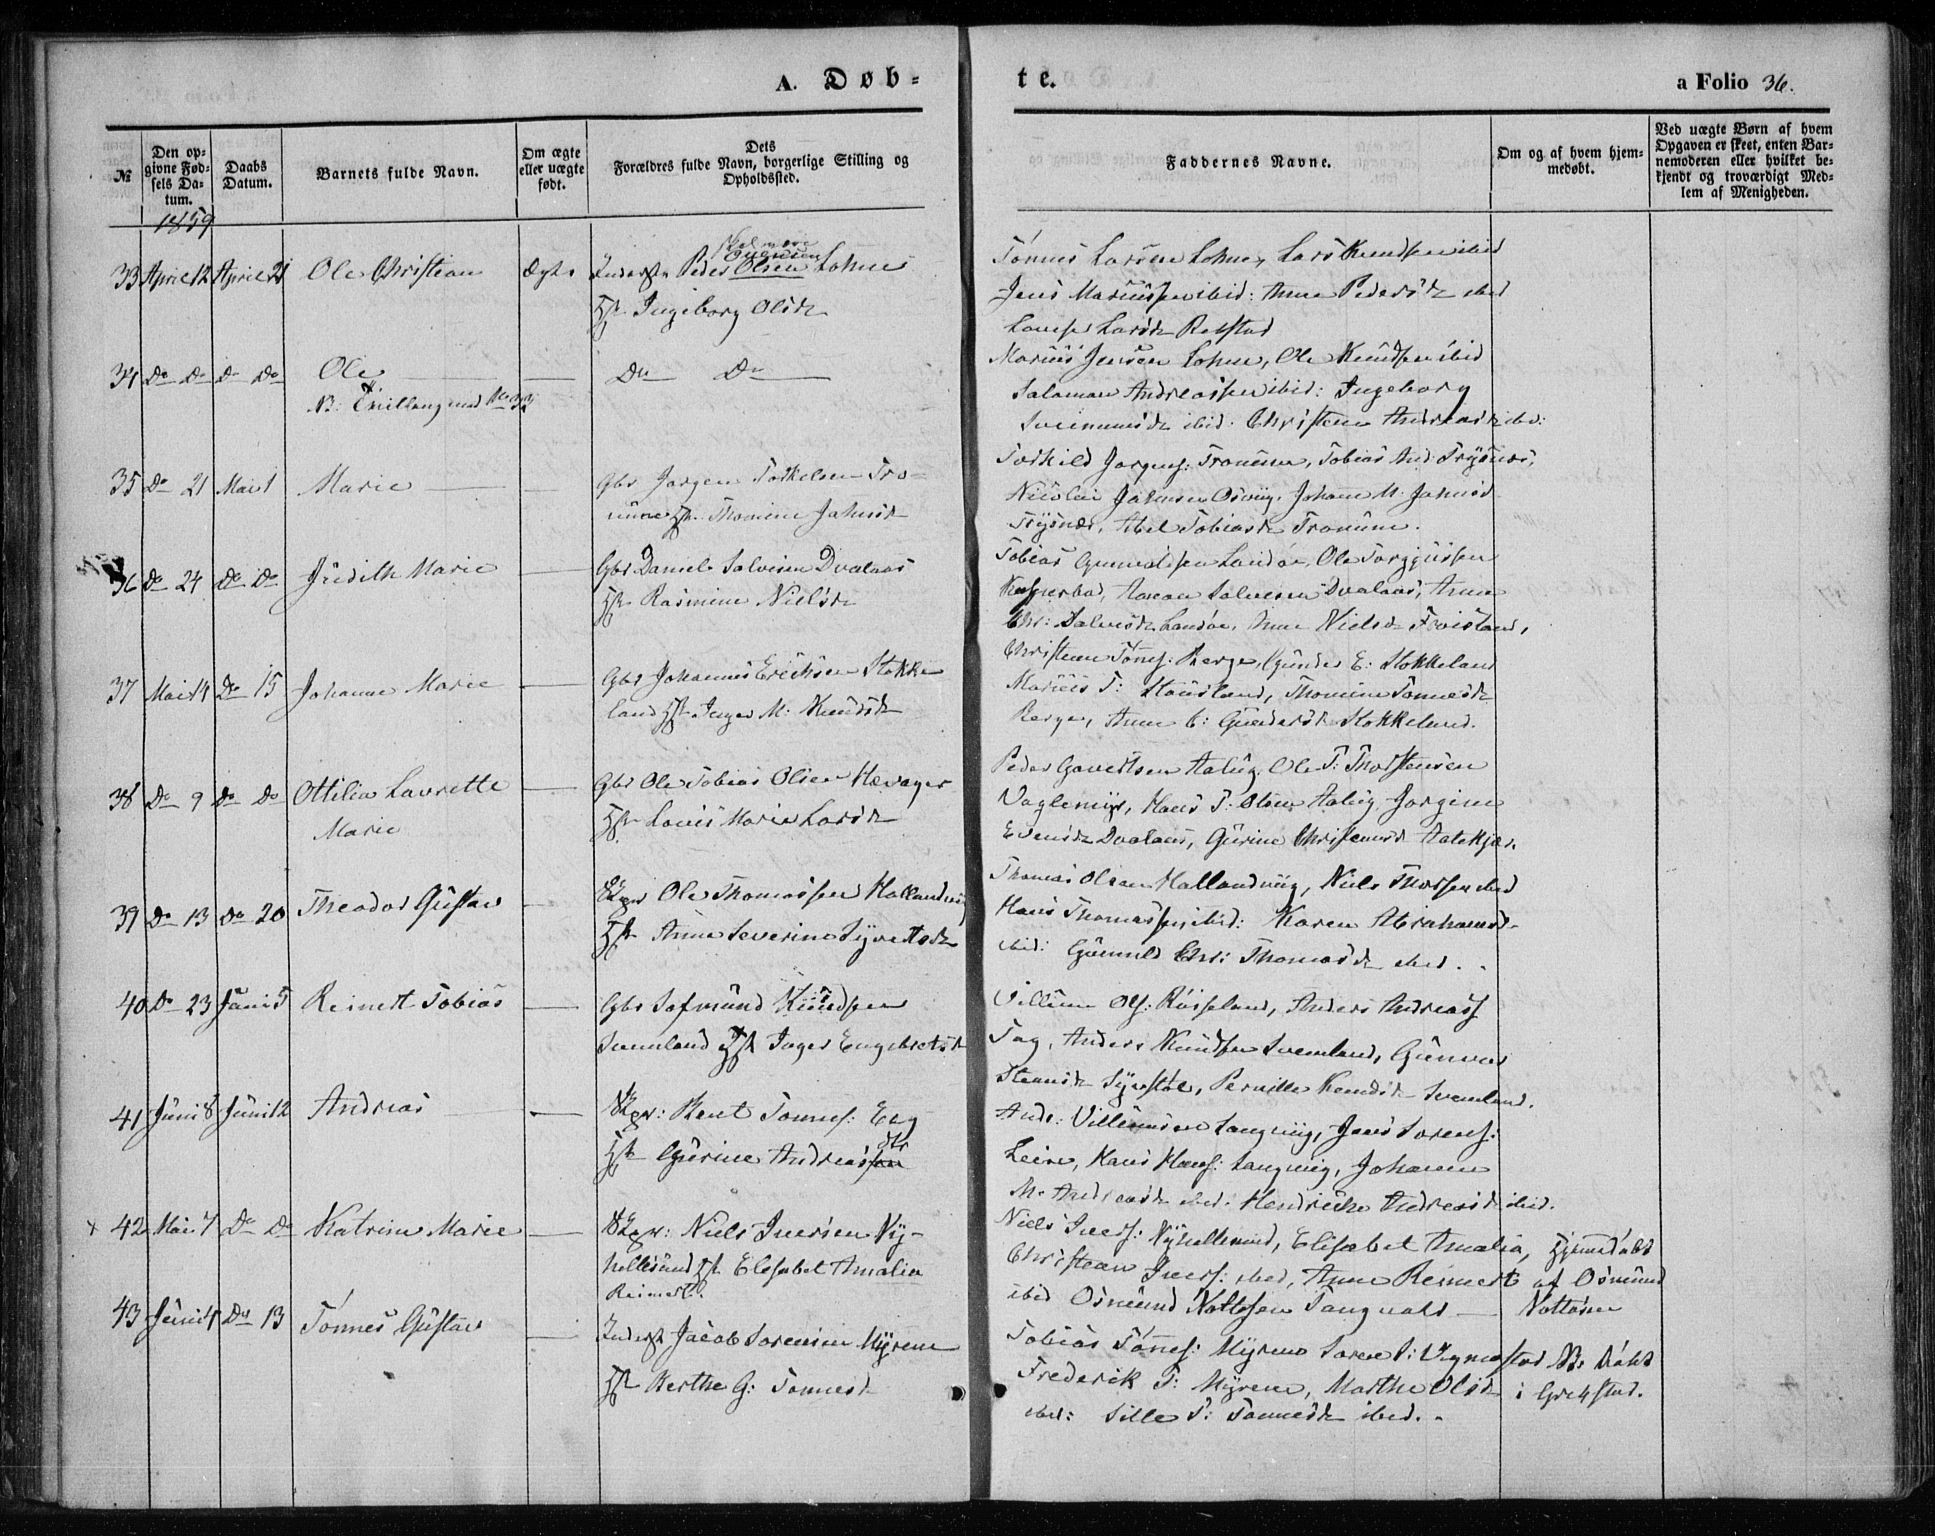 A. Døb-
te.
a Folio 36.
№
Den op-
givne Fød-
sels Da-
tum.
Daabs
Datum.
Barnets fulde Navn.
Om ægte
eller uægte
født.
Dets
Forældres fulde Navn, borgerlige Stilling og
Opholdssted.
Faddernes Navne.
Om og af hvem hjem-
medøbt.
Ved uægte Børn af hvem
Opgaven er skeet, enten Bar-
nemoderen eller hvilket be-
kjendt og troværdigt Med-
lem af Menigheden.
1859
skal være
33 April 12 April 21 Ole Christian Ægte Inderst Peder Olsen Lohne
Hst Ingeborg Olsdt
Tønnes Larsen Lohne, Lars Knudsen ibid
Jens Mariussen ibid: Anne Pedersdt ibid
Larsdt Rebstad
34 Do Do Do Do Ole Do Do
N: Tvilling med No 33
Marius Jensen Lohne, Ole Knudsen ibid
Salomon Andreassen ibid: Ingeborg
ibid: Christene Andreasdt ibid:
35 Do 21 Mai 1 Marie Gbr Jørgen Torkelsen Tro-
mme Hst Thomine Jahnsdt
Torkild Jørgens: Tromme, Tobias And: Trysnes,
Nicolai Jahnsen Osvig, Johanne M. Jahnsd
Trysnes, Abel Tobiasdt Tromme.
36 Do 24 Do Do Judith Marie Gbr Daniel Salvesen Dvalaas
Hst Rasmine Nielsdt
Tobias Gunvaldsen Landøe, Ole Torgjussen
Aanen Salvesen Dvalaas, Anne
Chr: Salvesdt Landøe, Anne Nielsd Froistad,
37 Mai 14 Do 15 Johanne Marie Gbr Johannes Erichsen Stokke
land Hst Inger M: Knudsdt
Christen Tønes: Berge, Gunder E: Stokkeland
Marius T: Stousland, Thomine Tønnesdt
Berge, Anne C: Gundersdt Stokkeland.
38 Do 9 Do Do Ottilia Lavrette
Marie
Gbr Ole Tobias Olsen Hævager
Hst Lovis Marie Larsdt
Peder Govertsen Aalug, Ole T: Thorstensen
Voglemyr, Hans T: Olsen Aalug, Jørgine
Evensdt Dvalaas, Gurine Christensd Aatekjær.
39 Do 13 Do 20 Theodor Gustav Ole Thomassen Hallandvig
Hst Anne Severine Syvertsdt
Thomas Olsen Hallandvig, Niels Thorsen ibid
Hans Thomassen ibid: Karen Abrahamsd-
ibid: Gunnild Chr: Thomasdt ibid.
40 Do 23 Juni 5 Reinert Tobias Gbr Sigmund Knudsen
Svenland Hst Inger Engebretsdt
Villum Ols: Røiseland, Anders Andreass
Tag, Anders Knudsen Svenland, Gunvor
Steansdt Syrstøl, Pernille Knudsdt Svenland.
41 Juni 8 Juni 12 Andreas Bent Tønnes: Eeg
Hst Gurine Andreas sen dtr
Ande: Villumsen Langvig, Jens Sørens:
Leire, Hans Hans: Langvig, Johanne
M. Andreasdt ibid. Hendrikke Andreasdt ibid.
x 42 Mai 7 Do Do Katrine Marie Niels Iversen Ny-
hellesund Hst Elisabet Amalia
Reinert
Niels Ivers: Nyhellesund, Elisabet Amalia,
Christian Ivers: ibid, Anne Reinert
ibid Osmund Nottesen Tangvald
Hjemdøbt
af Osmund
Nottøsen
43 Juni 4 Do 13 Tønnes Gustav Inderst Jacob Sørensen Myrene
Hst Berthe G: Tønnesdt
Tobias Tønes: Myrene Søren S: Vegnestad
Frederik T: Myrene, Marthe Olsdt
ibid: Sille T: Tønnesdt ibid.
NB: Døbt
i Grekstad.